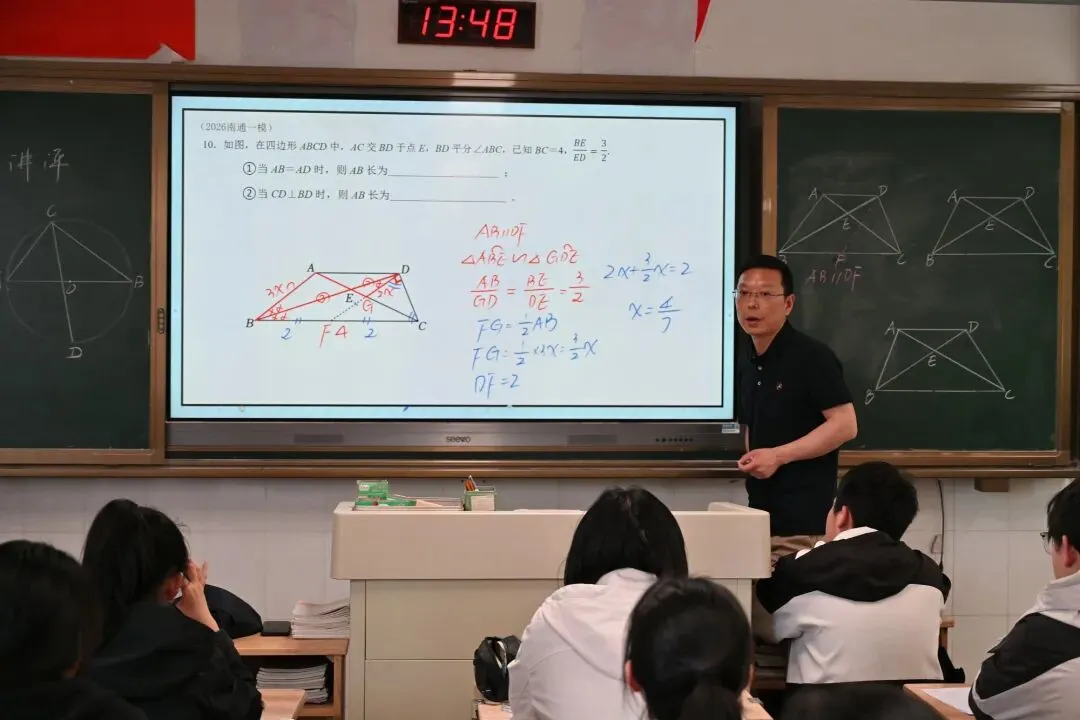 13:48
(2026南通一模)
10. 如图，在四边形 ABCD 中，AC 交 BD 于点 E，BD 平分∠ABC，已知 BC=4，BE/ED=3/2.
①当 AB=AD 时，则 AB 长为____________；
②当 CD⊥BD 时，则 AB 长为____________.
AB∥DF
△ABE∽△GDE
AB/GD=BE/DE=3/2
FG=1/2AB
FG=1/2×3x=3/2x
DF=2
2x+3/2x=2
x=4/7
A
D
3x
2x
E
G
B
2
F
4
2
C
seewo
C
D
B
D
A
D
E
B
F
C
AB∥DF
A
D
E
B
C
A
D
E
B
C